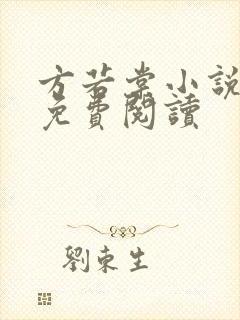 方若棠小說
免費閱讀
劉東生